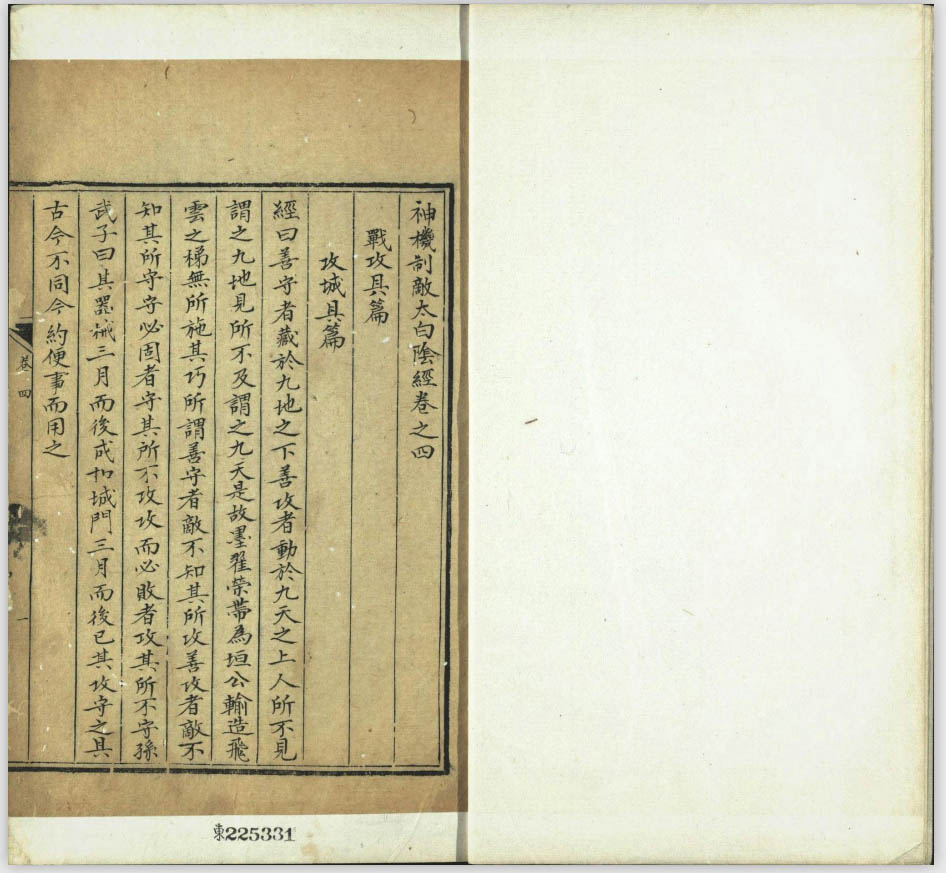 神機制敵太白陰經卷之四
戰攻具篇
攻城具篇
經曰善守者藏於九地之下善攻者動於九天之上人所不見
謂之九地見所不及謂之九天是故墨翟縈帶為垣公輸造飛
雲之梯無所施其巧所謂善守者敵不知其所攻善攻者敵不
知其所守守必固者守其所不攻攻而必敗者攻其所不守孫
武子曰其器械三月而後成扣城門三月而後已其攻守之具
古今不同今約便事而用之
卷四
一
東225331